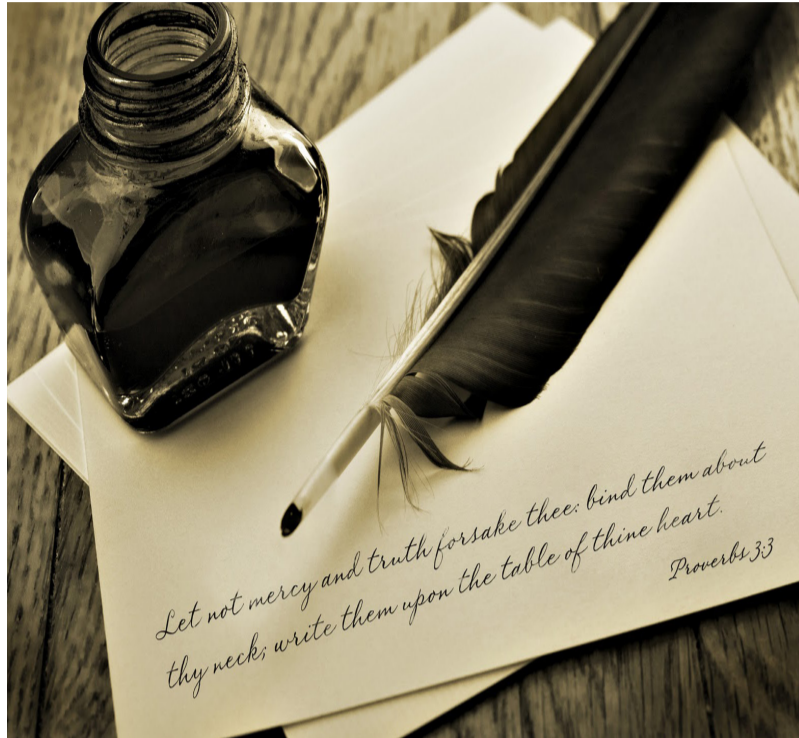 Let not mercy and truth forsake thee: bind them about
thy neck; write them upon the table of thine heart.
Proverbs 3:3